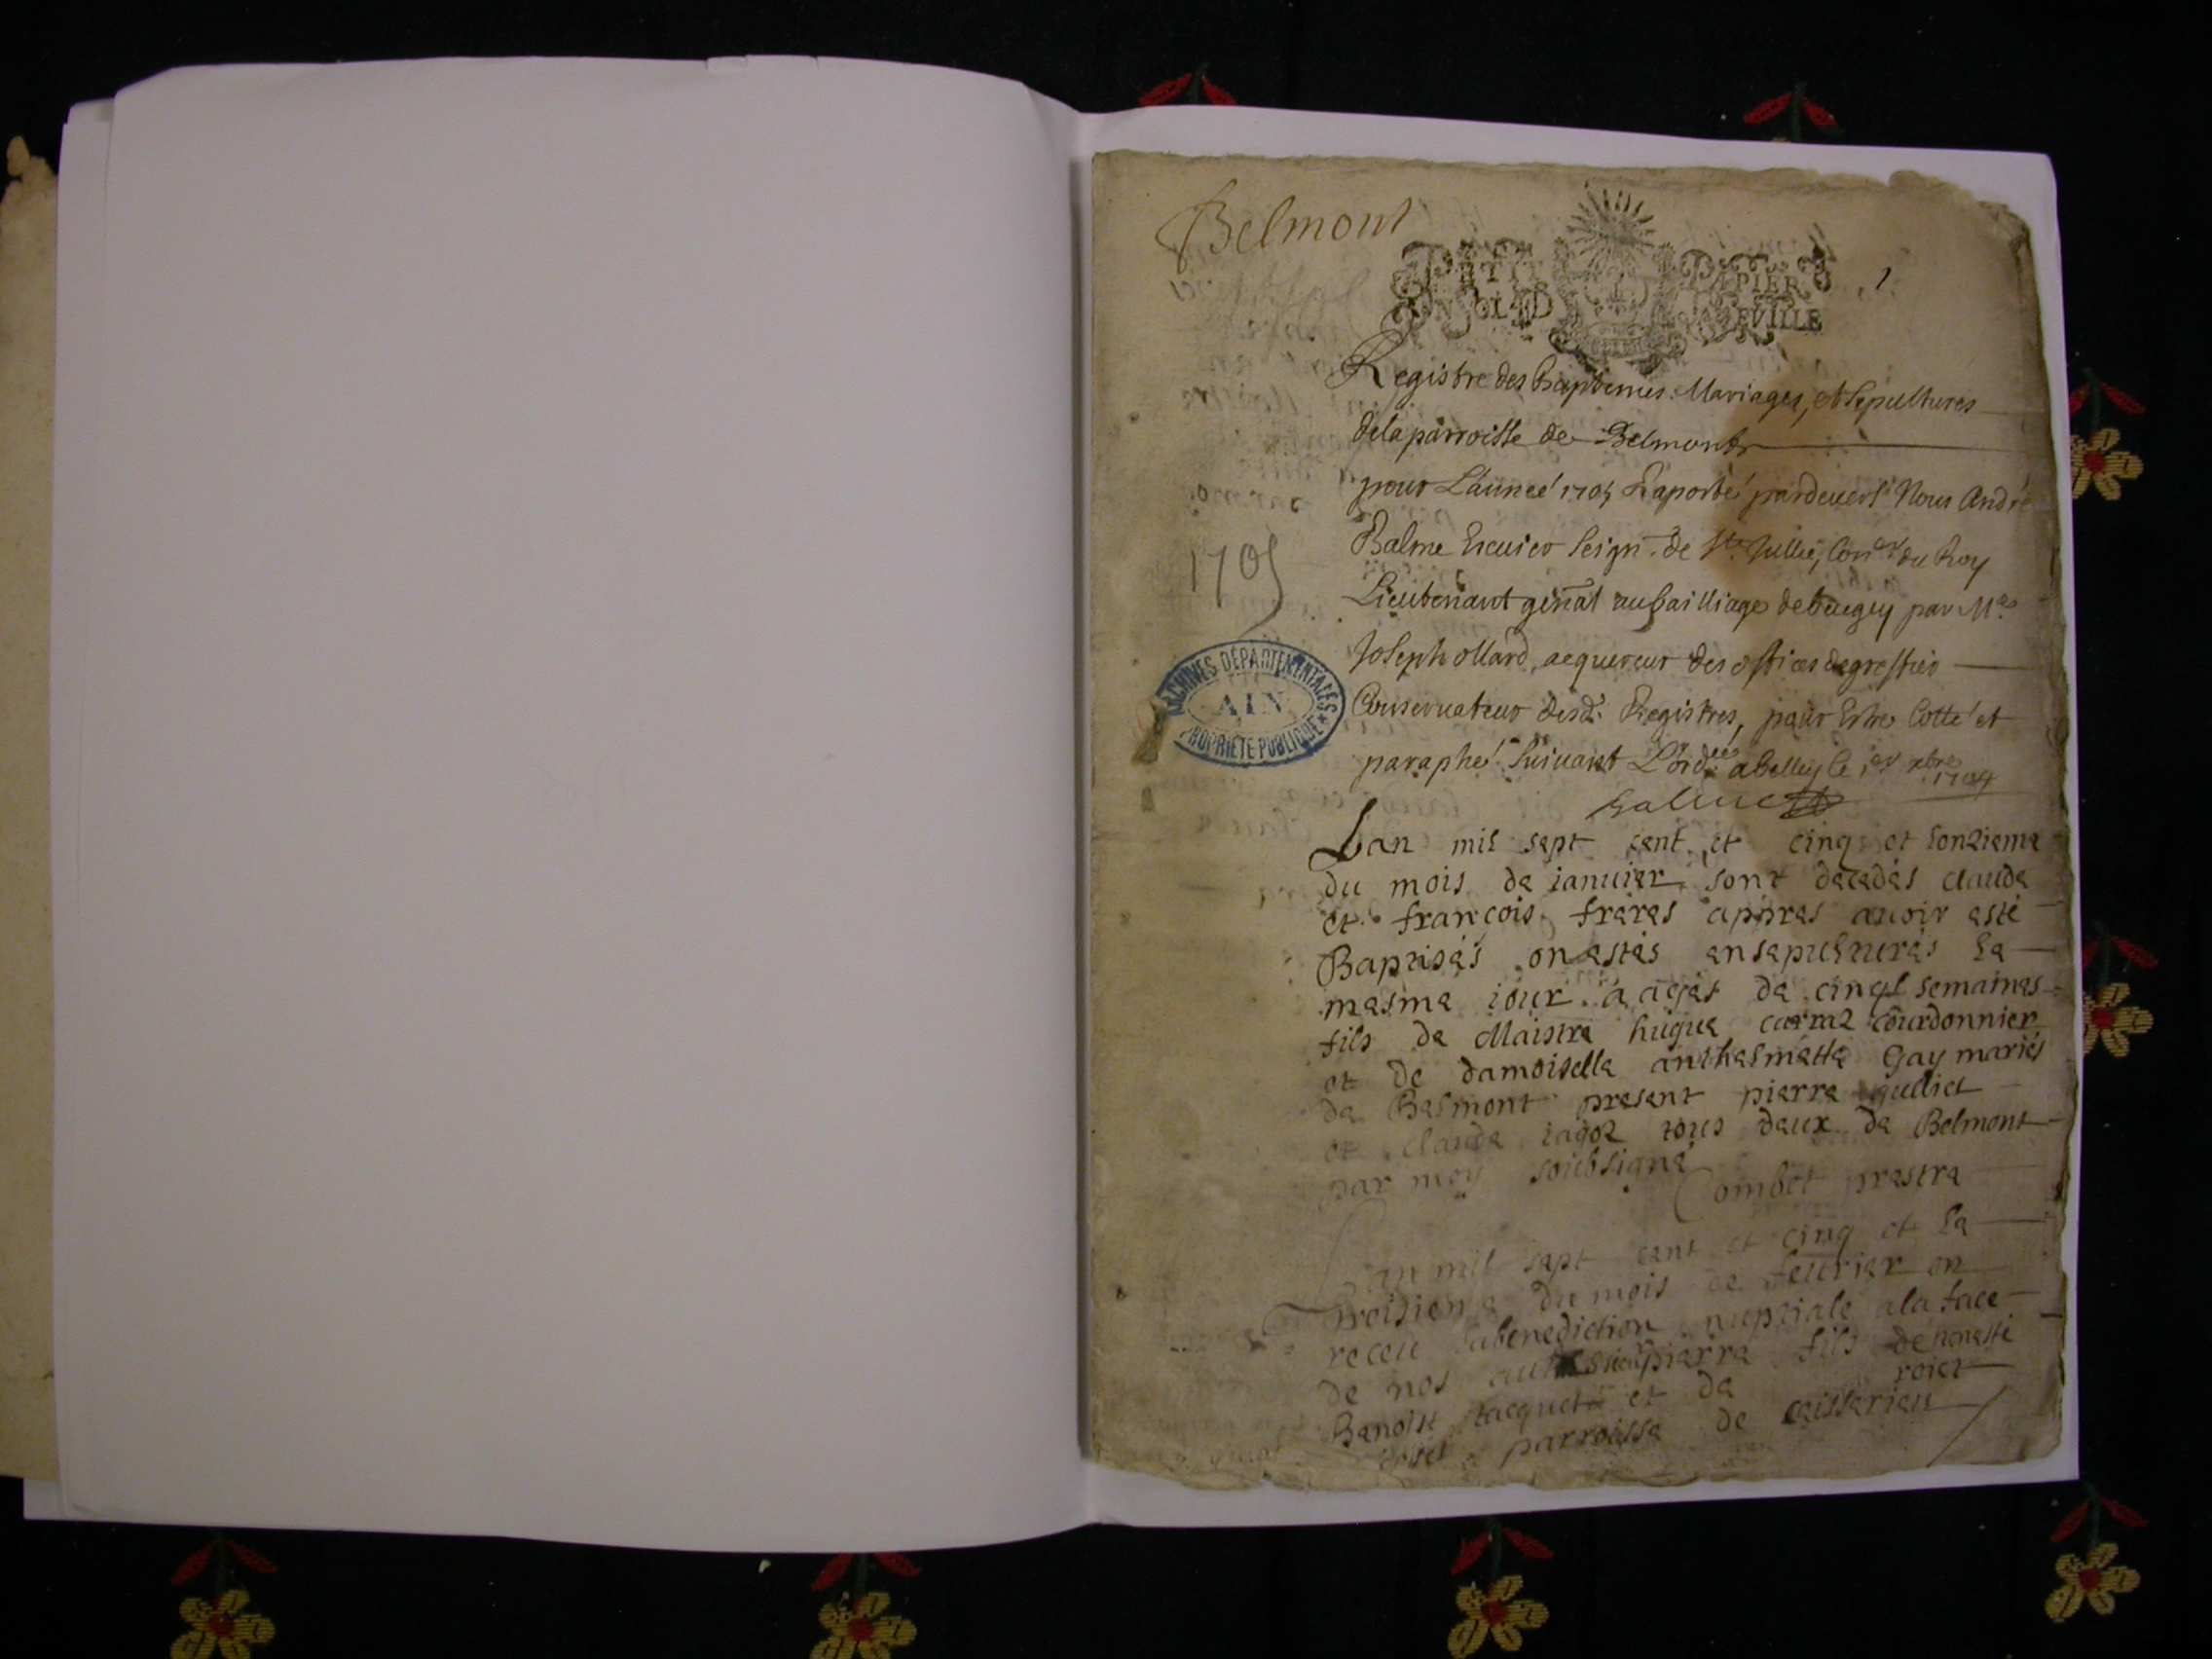 Belmont
PETIT PAPIER
1
Registre des Baptemes Mariages, et Sepultures
dela parroisse de Belmont
pour L'année 1705 Raporté pardevers Nous André
Balme Escuier Seign. de St. Jullie, Con.er du Roy
Lieutenant gñal au bailliage de bugey par Me
1705
Joseph ollard, acquereur des offices de greffier
Conservateur desd. Registres, pour Estre Cotté et
paraphé suivant L'ord.ce a belley le 1er xbre 1704
Balme
ARCHIVES DÉPARTEMENTALES
AIN
PROPRIÉTÉ PUBLIQUE
Lan mil sept cent et cinq et lonziema
du mois da ianuiar sont decedés clauda
et françois fraras appras auoir asté
Baptisés on astés ansapulturés la
masma iour a agés da cinq semainas
fils da Maistra hugua carraz courdonnier
et de damoisella anthalmatta Gay mariés
da Balmont prasant piarra gulliet
et Clauda iagoz tous daux da Belmont
par moy soubsigné
Combet prastra
Lan mil sapt cant et cinq et la
troisiema du mois de feurier on
receu labenediction nuptiale ala face
de nos piarra fils de honasté
Banoist Jacquet et da roiet
parroissa de ceissarieu